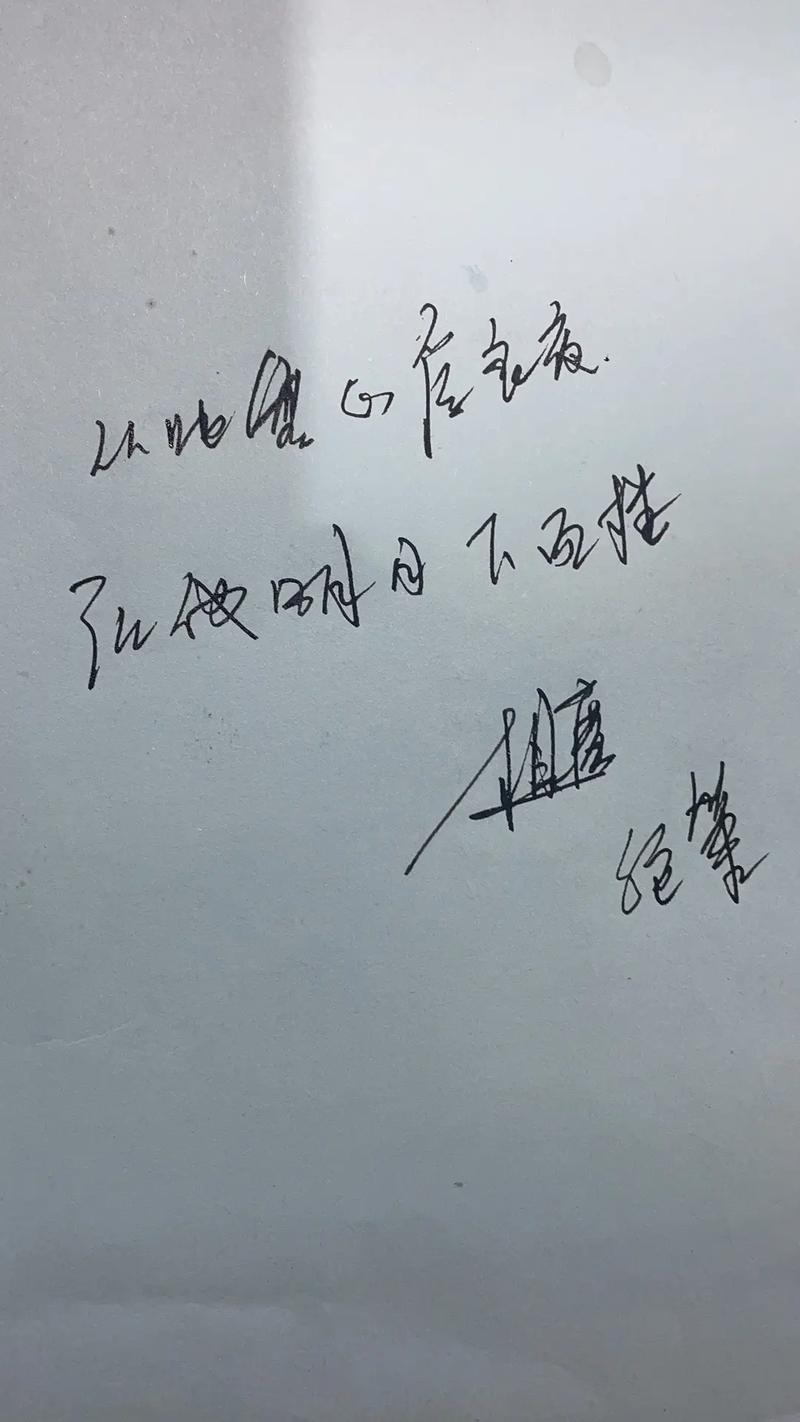 从此無心爱良夜.
任他明月下西楼
绝筆